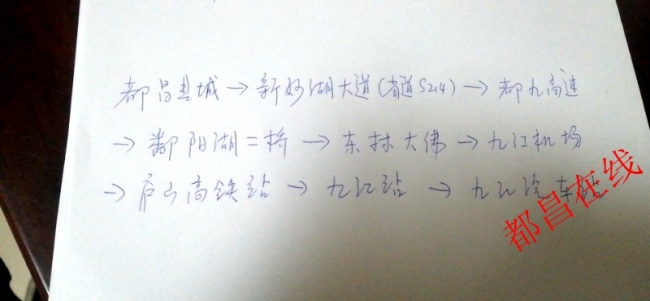 都昌县城→新妙湖大道(省道S214)→都九高速
→鄱阳湖二桥→东林大佛→九江机场
→庐山高铁站→九江站→九江汽车站
都昌在线